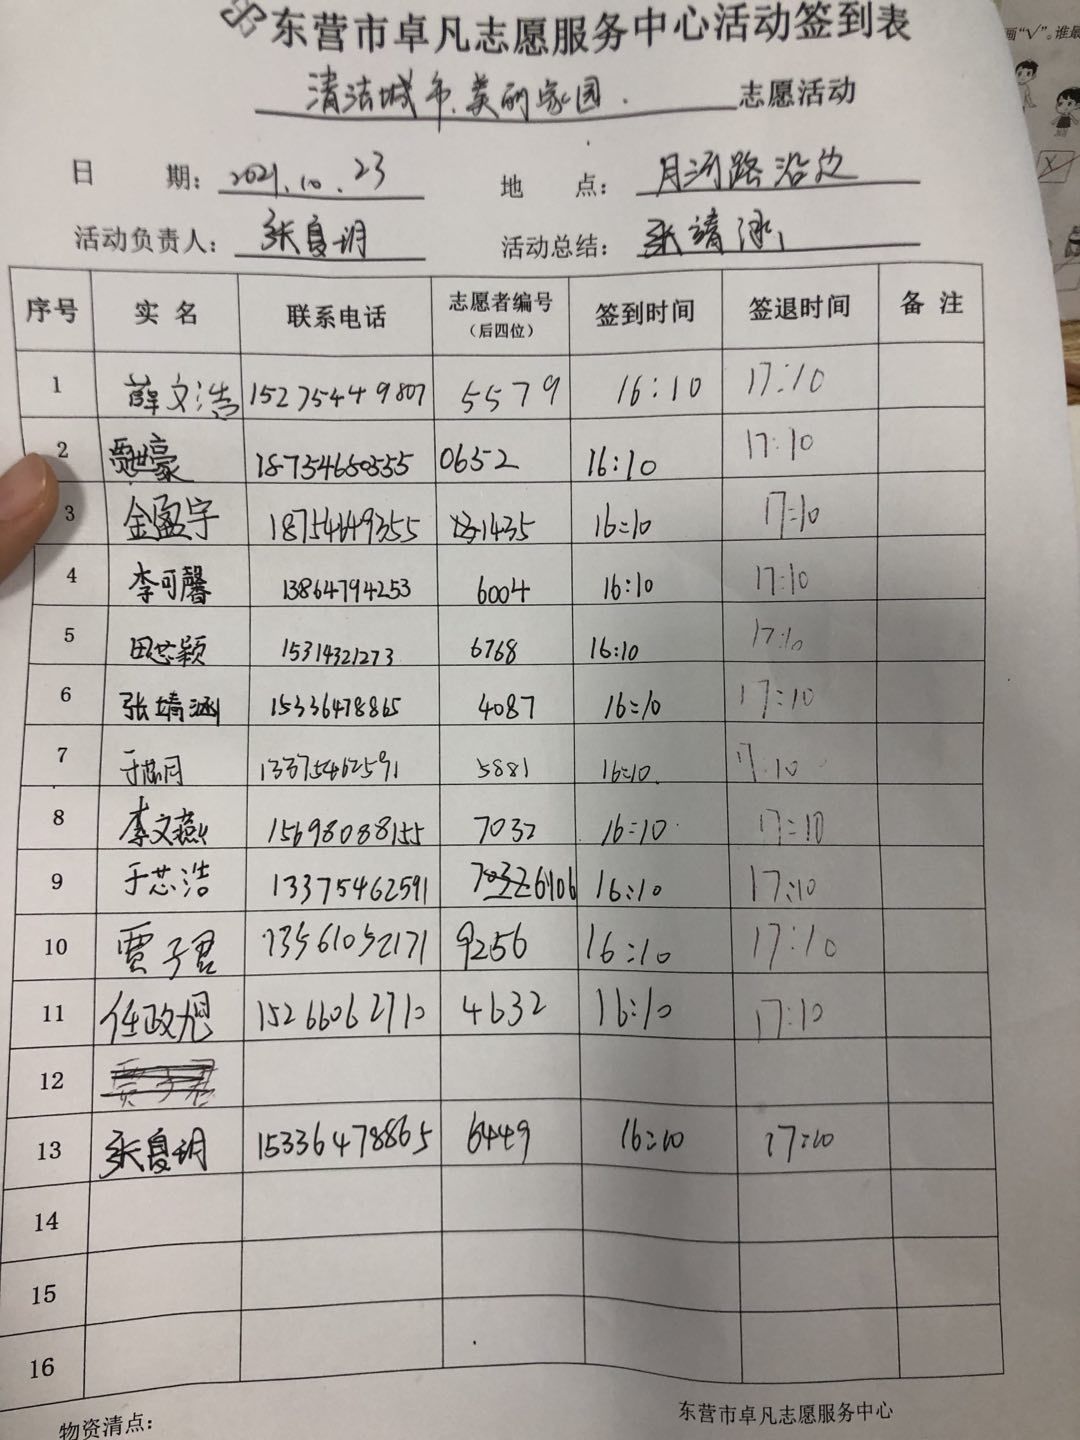 东营市卓凡志愿服务中心活动签到表
清洁城市.美丽家园. 志愿活动
日 期: 2021.10.23 地 点: 月河路沿边
活动负责人: 张夏玥 活动总结: 张靖涵
序号 实名 联系电话 志愿者编号(后四位) 签到时间 签退时间 备注
1 薛文浩 15275449807 5579 16:10 17:10
2 贾世豪 18754660555 0652 16:10 17:10
3 金盈宇 18754649355 1435 16:10 17:10
4 李可馨 13864794253 6004 16:10 17:10
5 田芯颖 15314321273 6768 16:10 17:10
6 张靖涵 15336478865 4087 16:10 17:10
7 于芯月 13375462591 5881 16:10 17:10
8 李文燕 15698088155 7032 16:10 17:10
9 于芯浩 13375462591 6106 16:10 17:10
10 贾子君 13561052171 9256 16:10 17:10
11 任政旭 15266062710 4632 16:10 17:10
12 贾子君
13 张夏玥 15336478865 6449 16:10 17:10
14
15
16
物资清点:
东营市卓凡志愿服务中心
画“√”。谁最